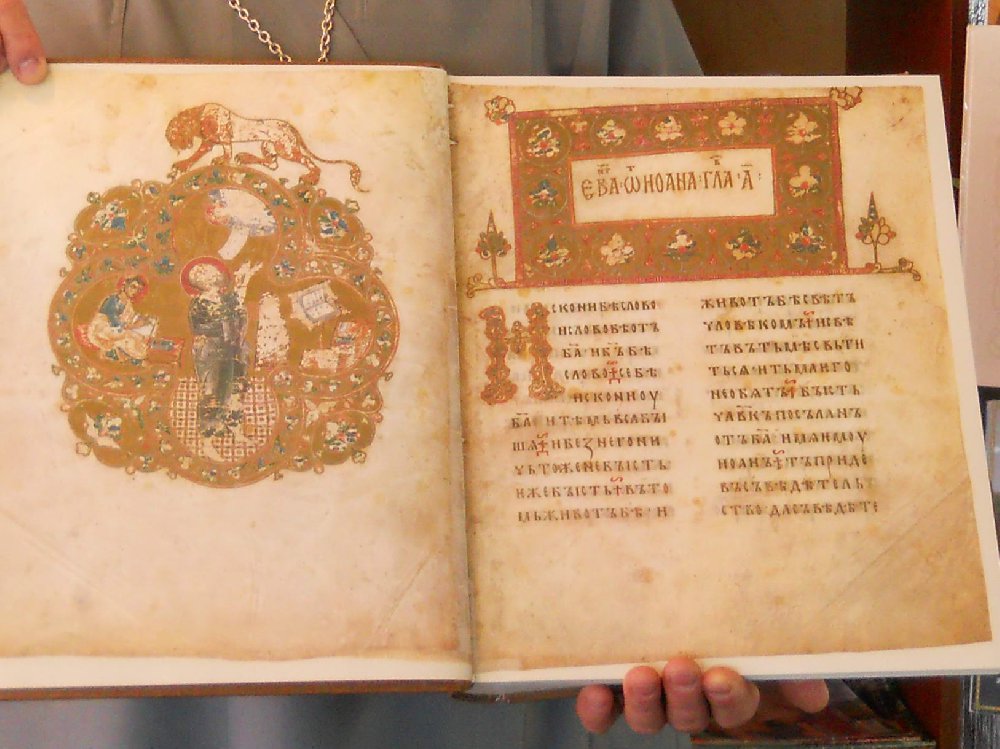 ЕВА·ѠИОАНА·ГЛА·А҃·
ИСКОНИБѢСЛОВО
ИСЛОВОБѢОТЪ
БА҃·ИБ҃ЪБѢ
СЛОВО·СЕБѢ
ИСКОНИОУ
БА҃·ИТѢМЬВЬСѦБЫ
ШѦ·ИБЕЗНЕГОНИ
ЧЬТОЖЕНЕБЫСТЬ
ИЖЕБЫСТЬ·ВЪТО
МЬЖИВОТЪБѢ·И
ЖИВОТЪБѢСВѢТЪ
ЧЛОВѢКОМЪ·ИСВѢ
ТЪВЪТЬМѢСВЬТИ
ТЬСѦ·ИТЬМАѤГО
НЕОБѦТЪ·БЫСТЬ
ЧЛ҃ВКЪПОСЪЛАНЪ
ОТЪБА҃·ИМѦѤМОУ
ИОАНЪ·ТЪПРИДЕ
ВЪСЪВѢДѢТЕЛЬ
СТВО·ДАСЪВѢДѢТЕ